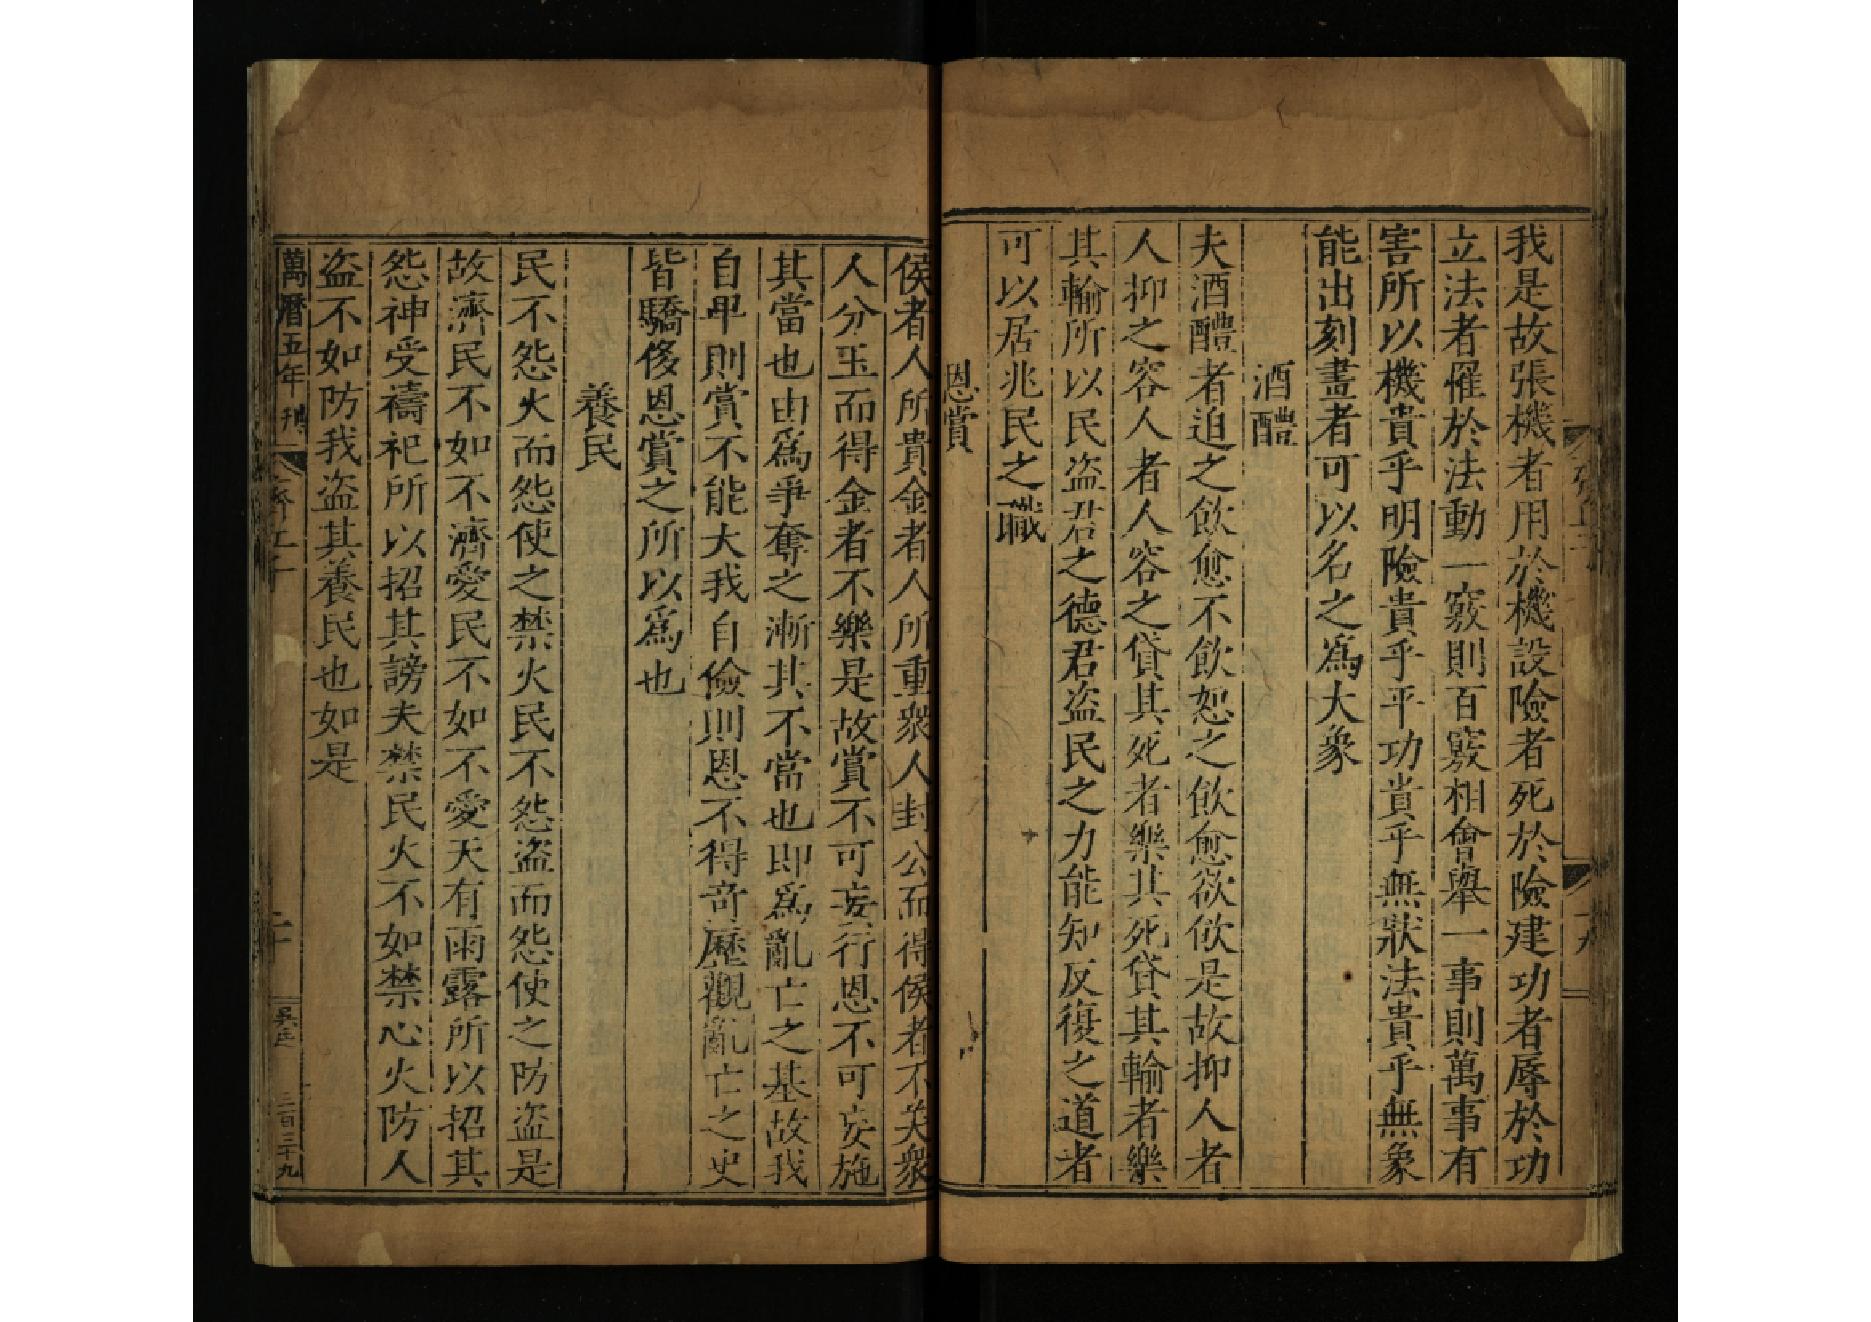 我是故張機者用於機設險者死於險建功者辱於功
立法者罹於法動一竅則百竅相會舉一事則萬事有
害所以機貴乎明險貴乎平功貴乎無狀法貴乎無象
能出刻畫者可以名之爲大象
酒醴
夫酒醴者迫之飲愈不飲恕之飲愈欲飲是故抑人者
人抑之容人者人容之貸其死者樂其死貸其輸者樂
其輸所以民盗君之德君盗民之力能知反復之道者
可以居兆民之職
恩賞
侯者人所貴金者人所重衆人封公而得侯者不美衆
人分玉而得金者不樂是故賞不可妄行恩不可妄施
其當也由爲爭奪之漸其不當也即爲亂亡之基故我
自卑則賞不能大我自儉則恩不得奇歷觀亂亡之史
皆驕侈恩賞之所以爲也
養民
民不怨火而怨使之禁火民不怨盗而怨使之防盗是
故濟民不如不濟愛民不如不愛天有雨露所以招其
怨神受禱祀所以招其謗夫禁民火不如禁心火防人
盗不如防我盗其養民也如是
萬曆五年刊
齊丘子
二十
三百三十九